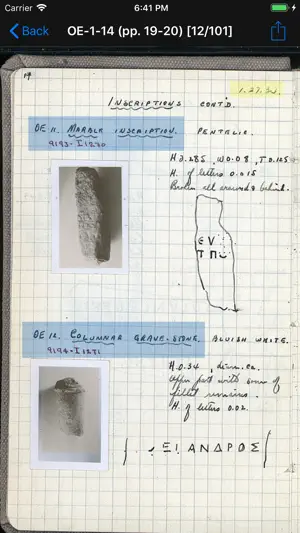 Carrier 6:41 PM
Back OE-1-14 (pp. 19-20) [12/101]
19
1.27.34.
INSCRIPTIONS CONT'D.
OE 11. MARBLE INSCRIPTION. PENTELIC.
9193-I1270
H 0.285, W 0.08, T 0.125
H. of letters 0.015
Broken all around & behind.
ΕΥ
ΤΠ
OE 12. COLUMNAR GRAVE-STONE. BLUISH WHITE.
9194-I1271
H. 0.34, diam. ca.
Upper part with some of
fillet remains.
H. of letters 0.02.
ΞΙΑΝΔΡΟΣ